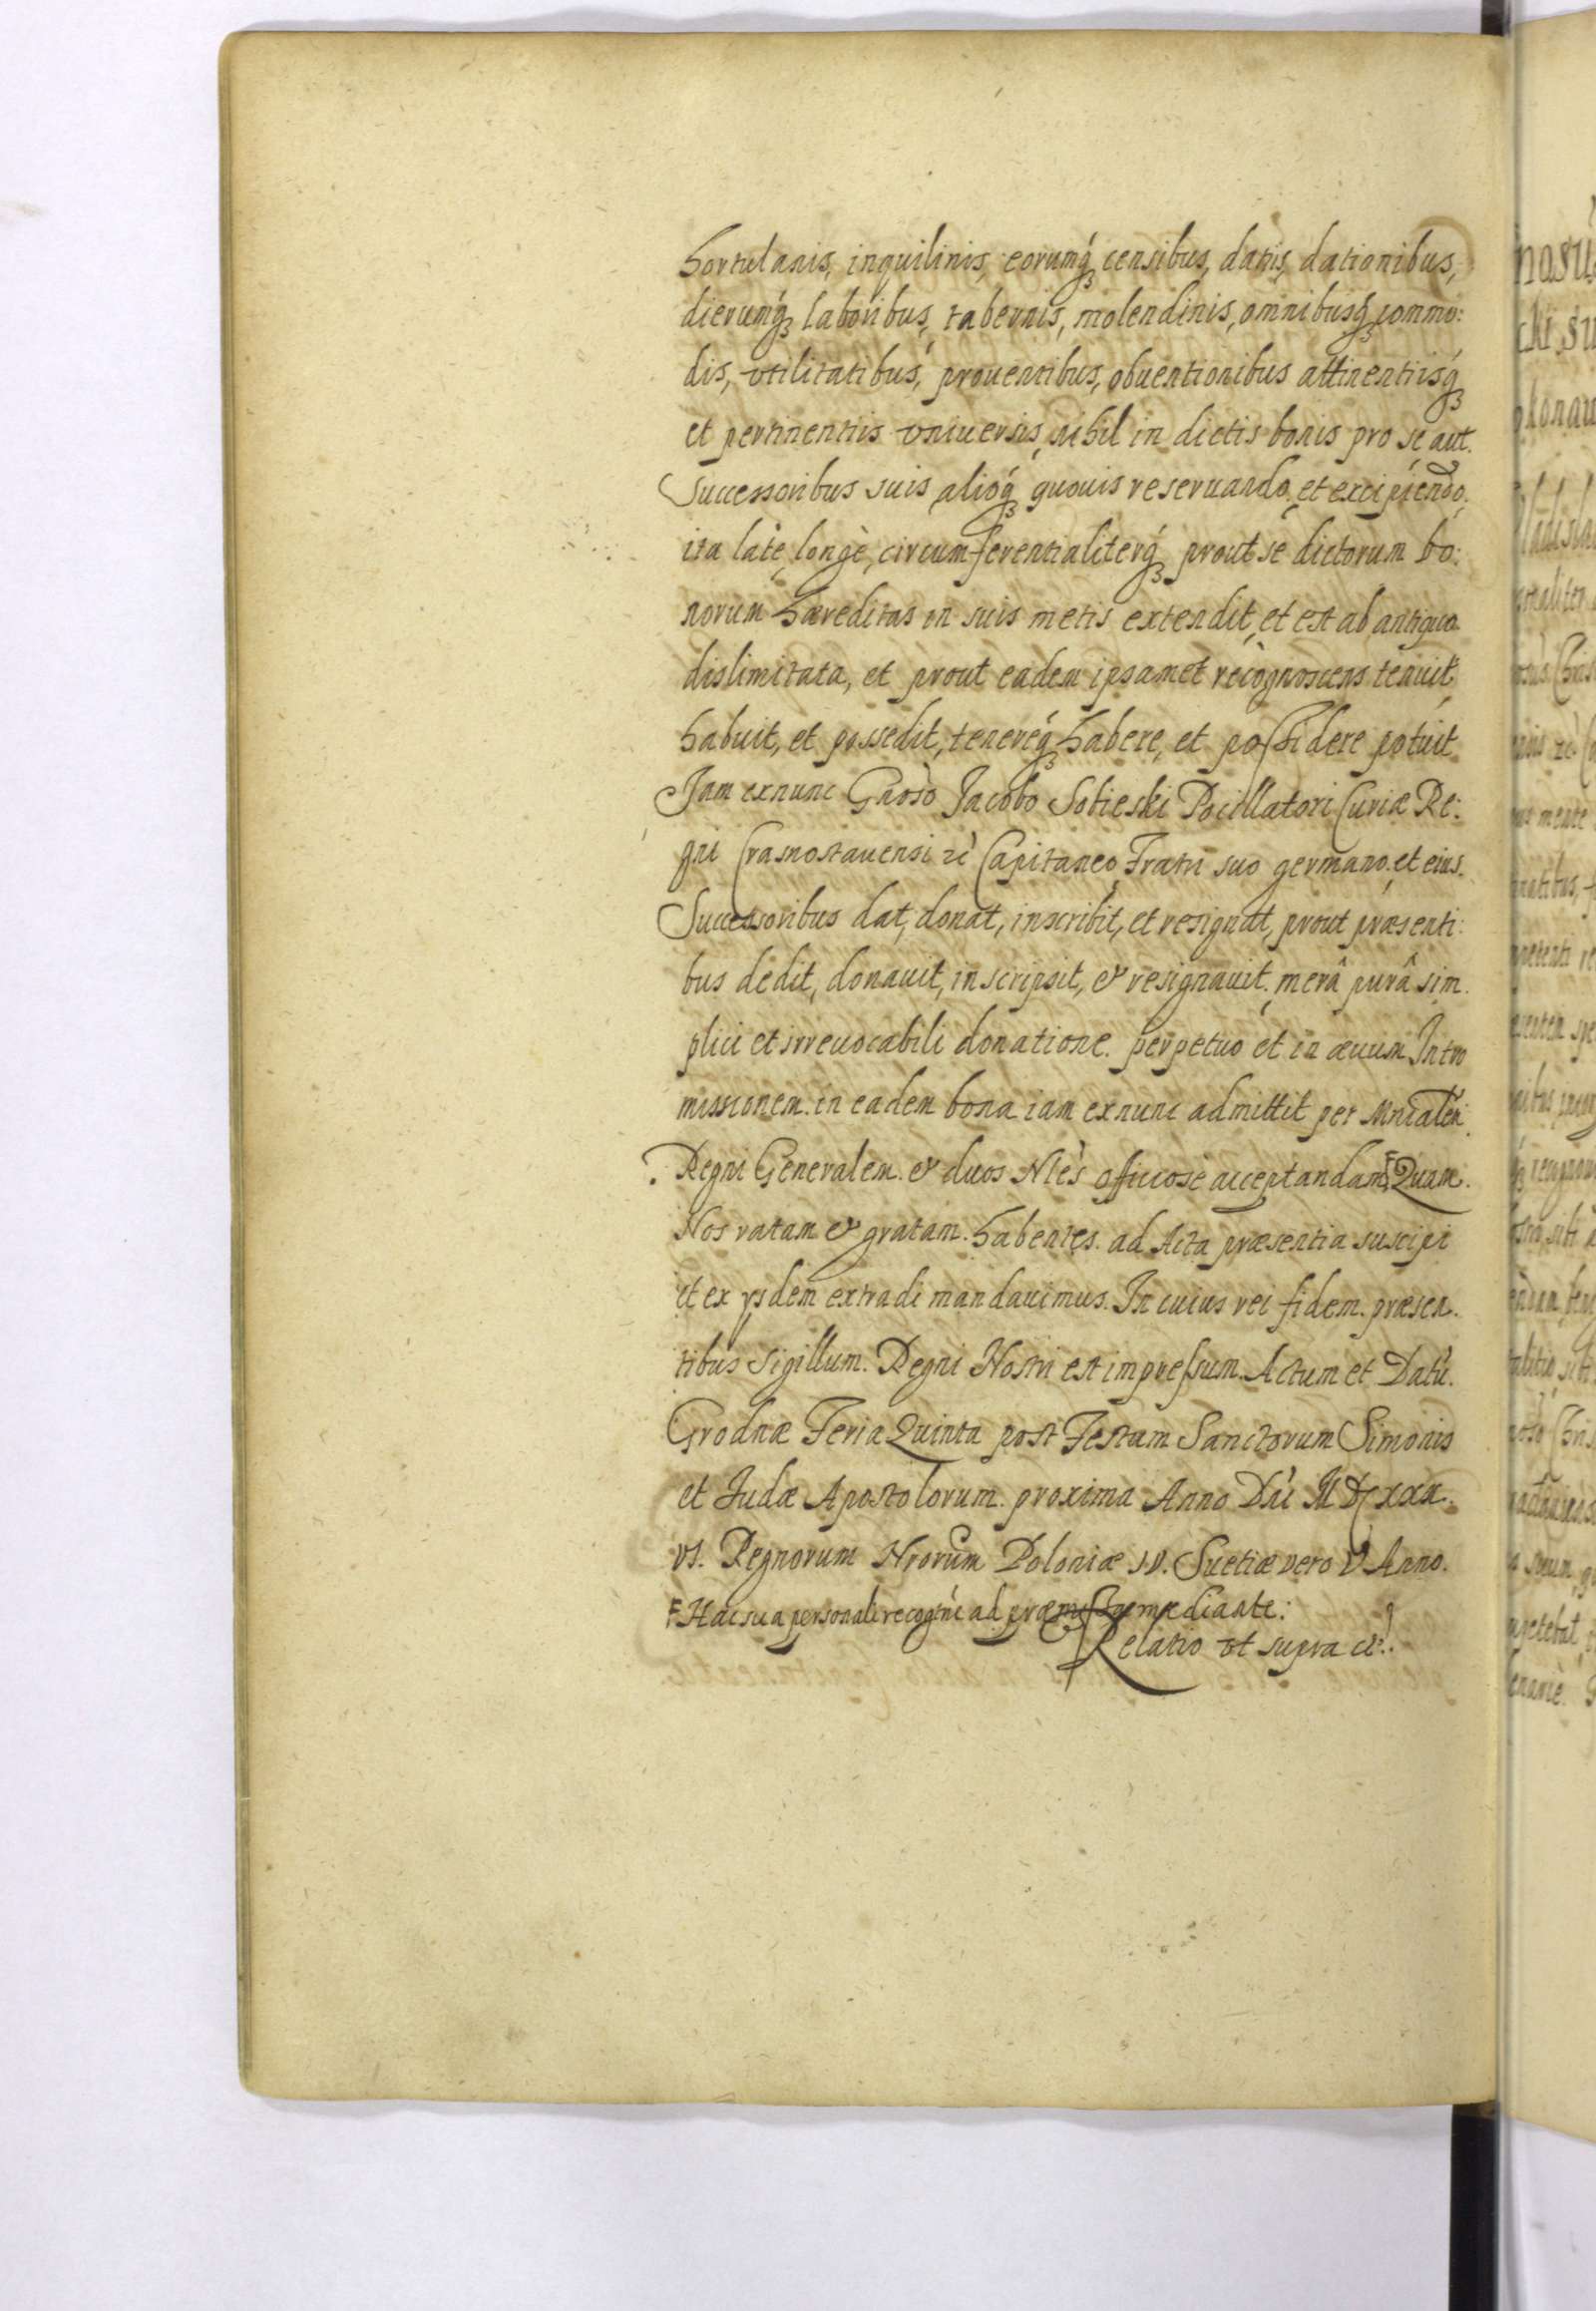 hortulanis, inquilinis, eorumq́ censibus, datis, dationibus,
dierumq́ laboribus, tabernis, molendinis, omnibusq́ commo:
dis, vtilitatibus, prouentibus, obuentionibus attinentiisq́
et pertinentiis vniuersis, nihil in dictis bonis pro se aut.
Successoribus suis alióq́ quouis reseruando, et excipiendo,
ita latè, longè, circumferentialiterq́ prout se dictorum bo:
norum hæreditas in suis metis extendit, et est ab antiquo
dislimitata, et prout eadem ipsamet recognoscens tenuit,
habuit, et possedit, tenereq́ habere, et possidere potuit
Jam exnunc Gnoso Jacobo Sobieski Pocillatori Curiæ Re:
gni Crasnostauensi zc Capitaneo, Fratri suo germano, et eius.
Successoribus dat, donat, inscribit, et resignat, prout præsenti:
bus dedit, donauit, inscripsit, & resignauit, merâ purâ sim.
plici et irreuocabili donatione. perpetuo et in æuum Intro
missionem. in eadem bona iam exnunc admittit per Mnialem
Regni Generalem. & duos Nles officiosè acceptandam F Quam.
Nos ratam & gratam. habentes. ad Acta præsentia suscipi
et ex ysdem extradi mandauimus. In cuius rei fidem. præsen.
tibus Sigillum. Regni Nostri est impressum. Actum et Datu.
Grodnæ Feria Quinta post Festum Sanctorum Simonis
et Judæ Apostolorum. proxima Anno Dni M DC XXX.
VI. Regnorum Nrorum Poloniæ IV. Suetiæ vero V Anno.
F Hac sua personali recogne ad mediante:
Relatio vt supra